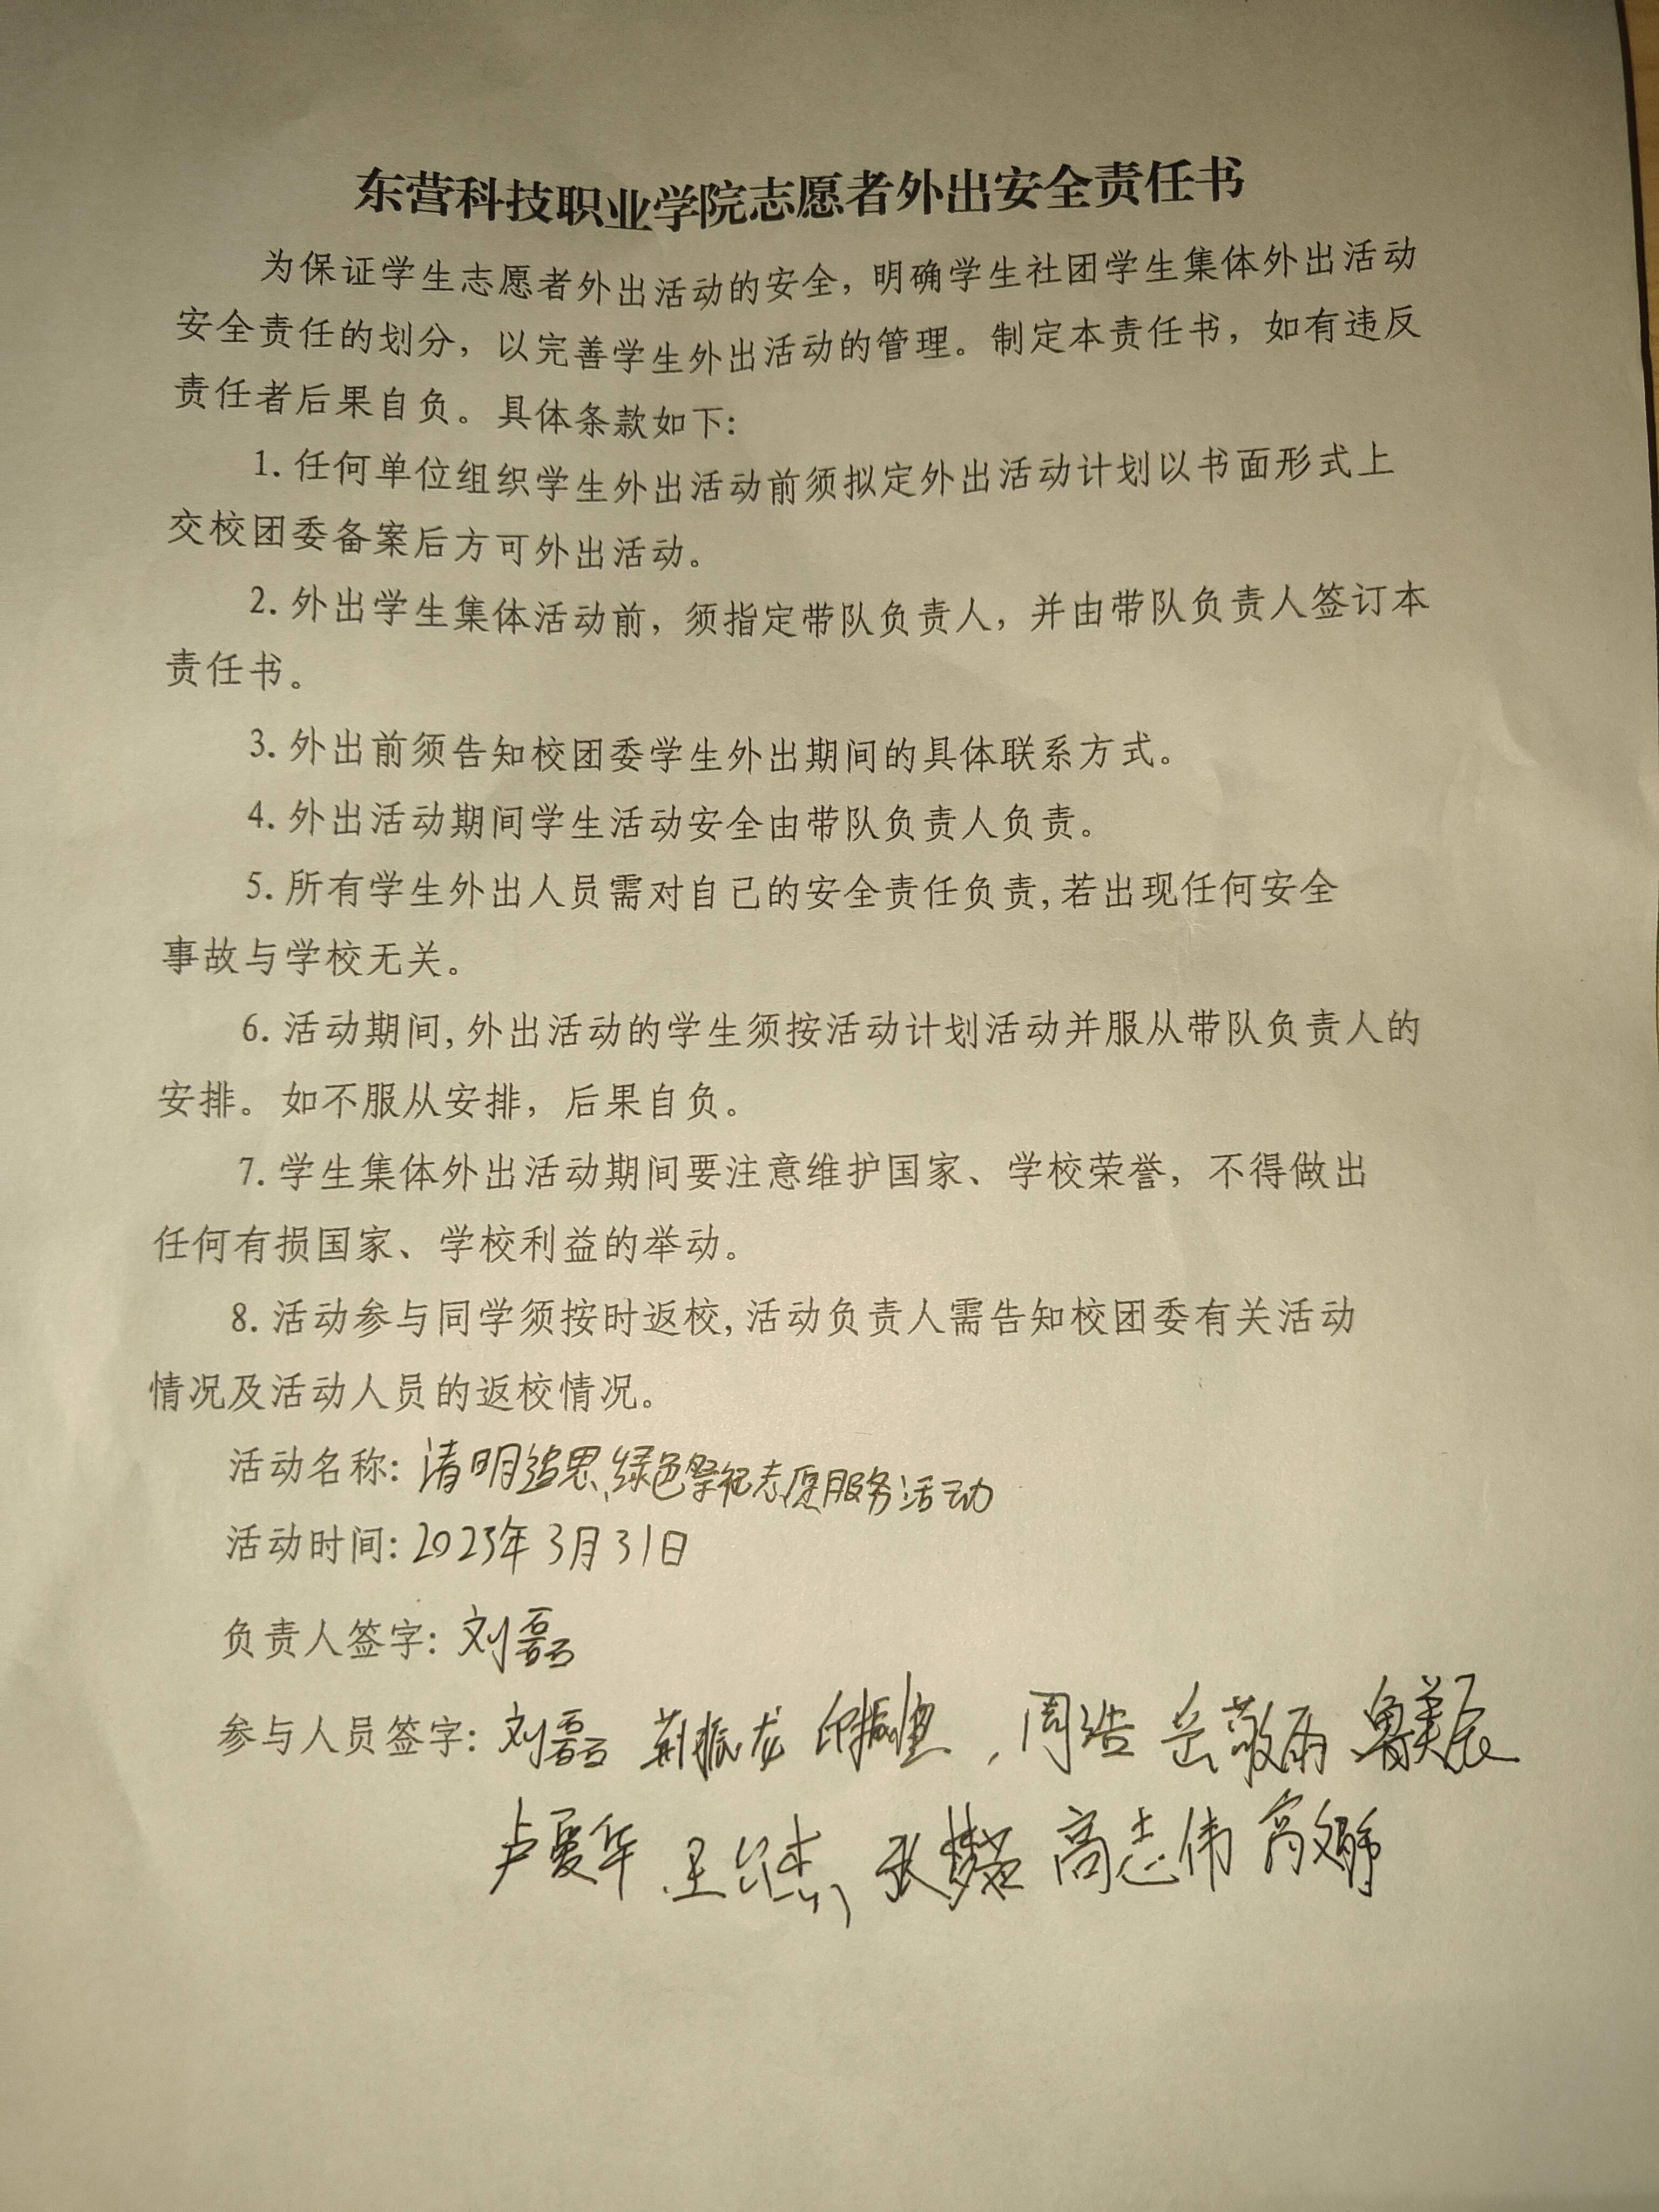 东营科技职业学院志愿者外出安全责任书
为保证学生志愿者外出活动的安全，明确学生社团学生集体外出活动
安全责任的划分，以完善学生外出活动的管理。制定本责任书，如有违反
责任者后果自负。具体条款如下：
1. 任何单位组织学生外出活动前须拟定外出活动计划以书面形式上
交校团委备案后方可外出活动。
2. 外出学生集体活动前，须指定带队负责人，并由带队负责人签订本
责任书。
3. 外出前须告知校团委学生外出期间的具体联系方式。
4. 外出活动期间学生活动安全由带队负责人负责。
5. 所有学生外出人员需对自己的安全责任负责,若出现任何安全
事故与学校无关。
6. 活动期间,外出活动的学生须按活动计划活动并服从带队负责人的
安排。如不服从安排，后果自负。
7. 学生集体外出活动期间要注意维护国家、学校荣誉，不得做出
任何有损国家、学校利益的举动。
8. 活动参与同学须按时返校,活动负责人需告知校团委有关活动
情况及活动人员的返校情况。
活动名称：清明追思、绿色祭祀志愿服务活动
活动时间：2023年3月31日
负责人签字：刘磊
参与人员签字：刘磊 荆振龙 周浩 岳敬雨 鲁美辰
卢夏华 高志伟